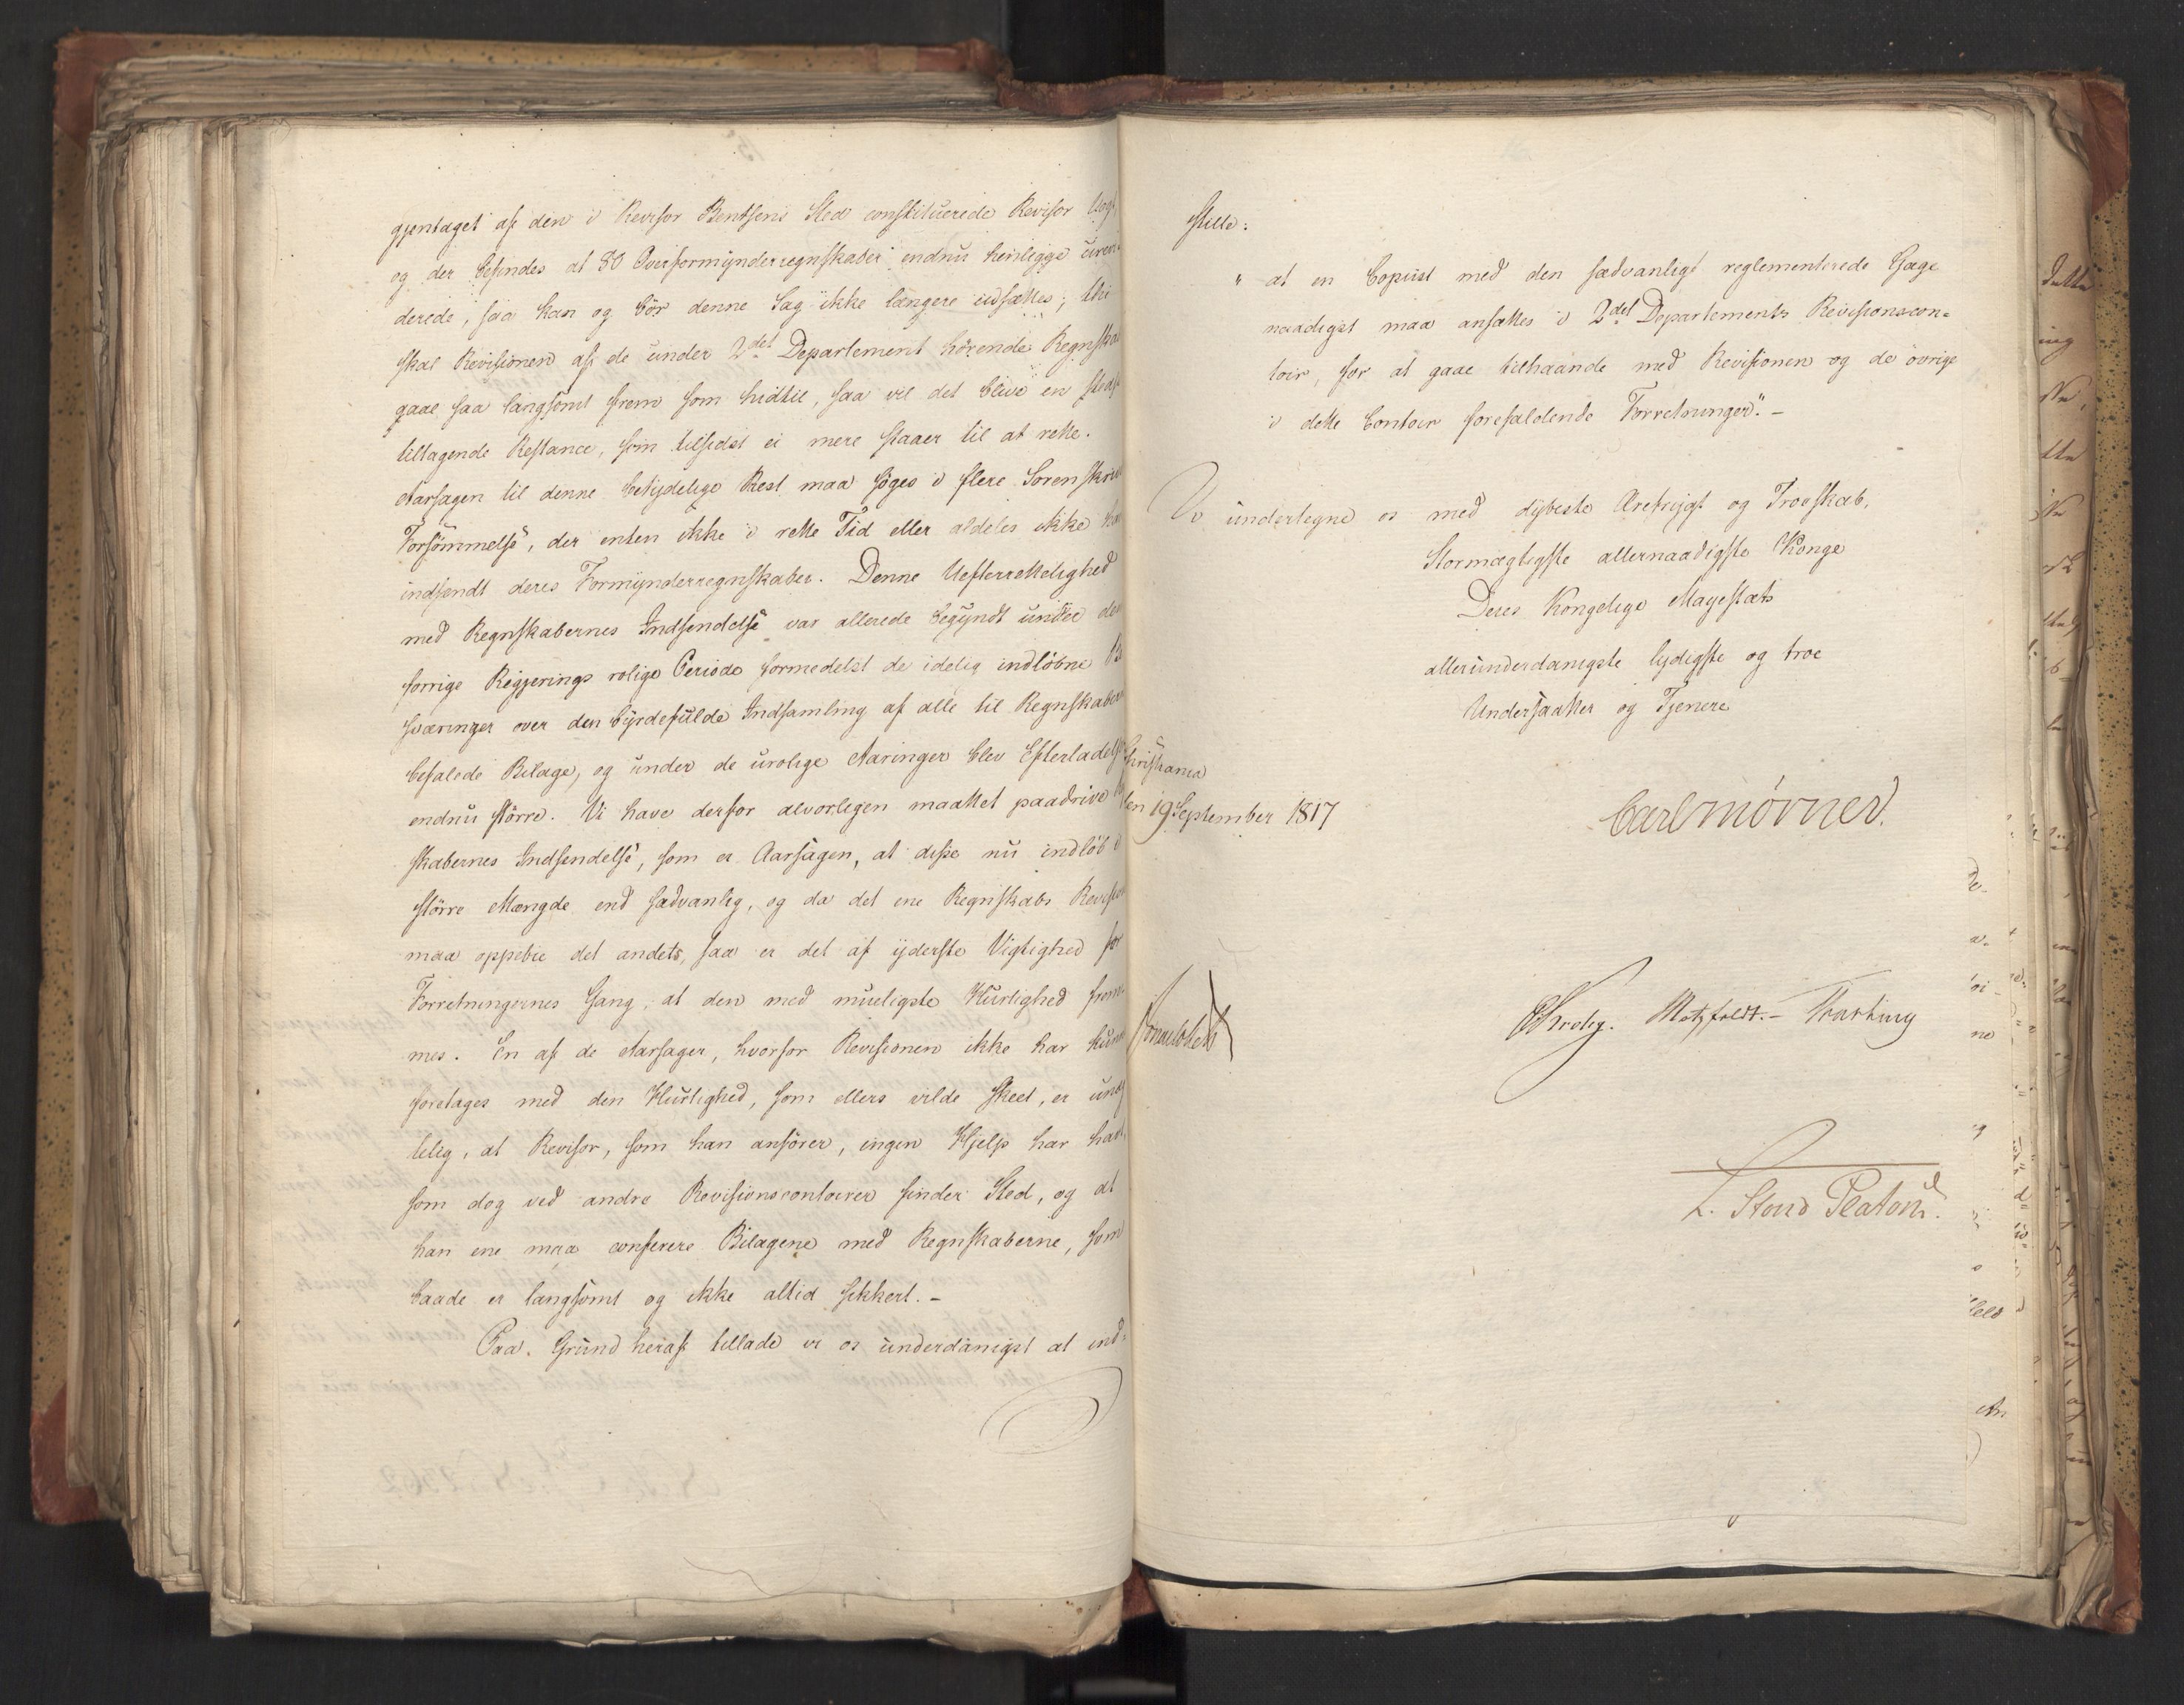 gjentaget af den i Revisor Bentsens Sted constituerede Revisor
og der befindes at 80 Overformynderregnskaber endnu henligge urevi
derede, saa kan og bör denne Sag ikke længere udsættes; thi
skal Revisionen af de under 2det Departement hörende Regnska
gaae saa langsomt frem som hidtil, saa vil det blive en
tiltagende Restance, som tilsidst ei mere staaer til at rette.
Aarsagen til denne betydelige Rest maa söges i flere Sorenskri
Forsömmelse, der enten ikke i rette Tid eller aldeles ikke ha
indsendt deres Formynderregnskaber. Denne Uefterrettelighed
med Regnskabernes Indsendelse var allerede begyndt under den
forrige Regjerings rolige Periode formedelst de idelig indlöbne Be
sværinger over den byrdefulde Indsamling af alle til Regnskabern
befalede Bilage, og under de urolige Aaringer blev Efterladels
endnu större. Vi have derfor alvorligen maattet paadrive
skabernes Indsendelse, som er Aarsagen, at disse nu indlöb i
större Mængde end sædvanlig, og da det ene Regnskabs Revision
maa oppebie det andets, saa er det af yderste Vigtighed for
Forretningernes Gang, at den med mueligste Hurtighed frem-
mes. En af de Aarsager, hvorfor Revisionen ikke har kun
foretages med den Hurtighed, som ellers vilde skeet, er
telig, at Revisor, som han anförer, ingen Hjelp har havt,
som dog ved andre Revisionscontoirer finder Sted, og at
han ene maa conferere Bilagene med Regnskaberne, som
baade er langsomt og ikke altid sikkert. -
Paa Grund heraf tillade vi os underdanigst at ind-
stille:
" at en Copiist med den sædvanlige reglementerede Gage
naadigst maa ansættes i 2det Departements Revisionscon-
toir, for at gaae tilhaande med Revisionen og de övrige
i dette Contoir forefaldende Forretninger". -
Vi undertegne os med dybeste Ærefrygt og Troeskab,
Stormægtigste allernaadigste Konge
Deres Kongelige Mayestæts
allerunderdanigste lydigste og troe
Undersaatter og Tjenere
Christiania
den 19 September 1817
Carl Mörner.
Krohg. Motzfeldt. - Treschow
Sommerhielm
L. Stoud Platou.